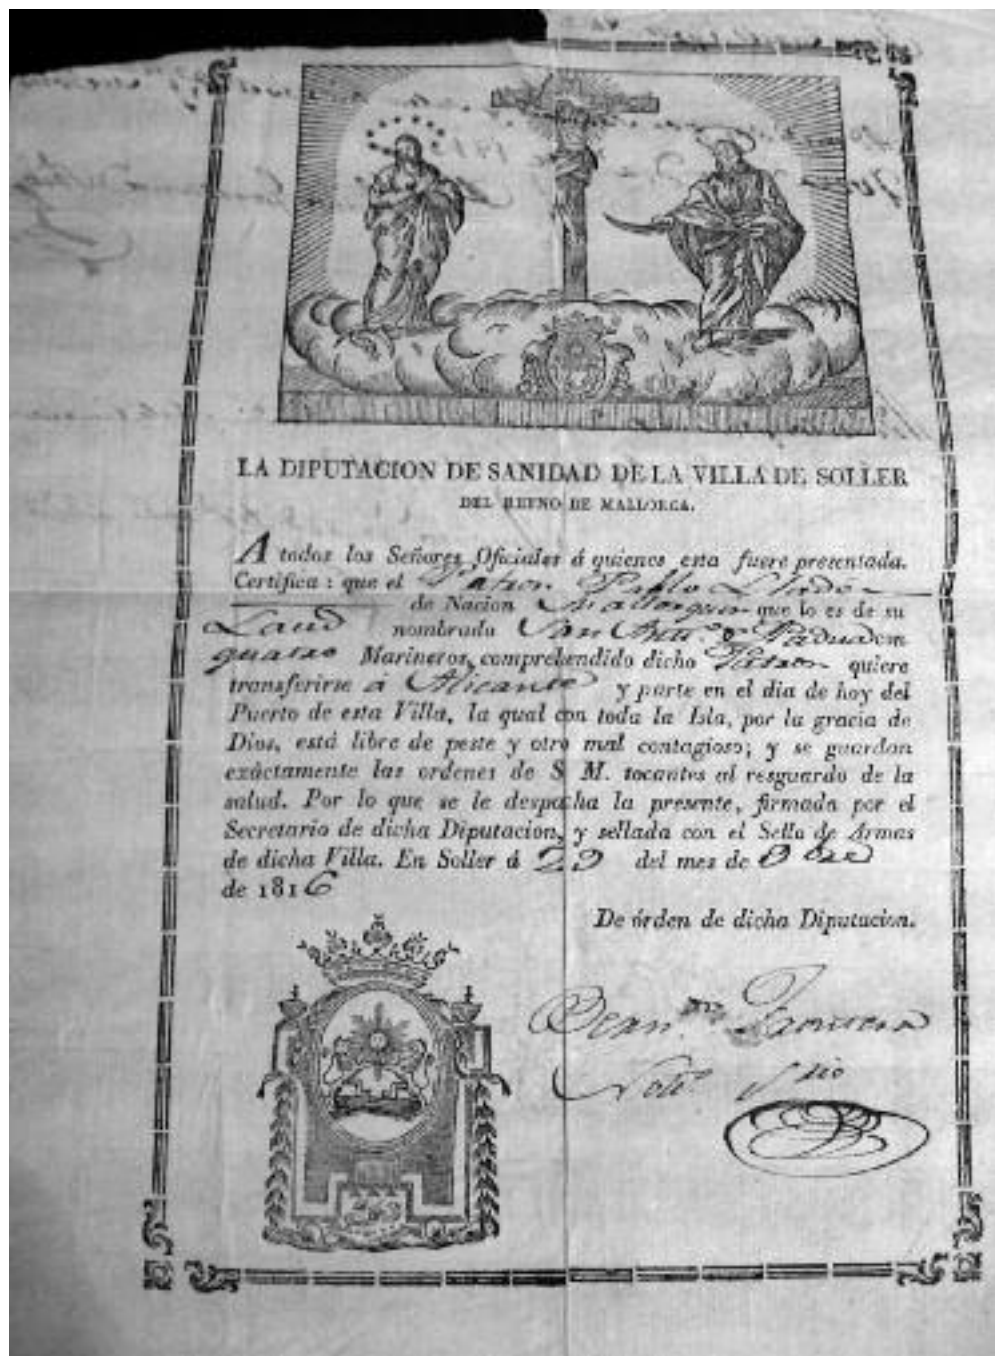 LA DIPUTACION DE SANIDAD DE LA VILLA DE SOLLER
DEL REYNO DE MALLORCA.
A todos los Señores Oficiales á quienes esta fuere presentada.
Certifica: que el Patron Pablo Lladó
de Nacion Mallorquin que lo es de su
Laud nombrado San Anto. d Padua con
quatro Marineros, comprehendido dicho Patron quiere
transferirse á Alicante y parte en el dia de hoy del
Puerto de esta Villa, la qual con toda la Isla, por la gracia de
Dios, está libre de peste y otro mal contagioso; y se guardan
exâctamente las ordenes de S M. tocantes al resguardo de la
salud. Por lo que se le despacha la presente, firmada por el
Secretario de dicha Diputacion, y sellada con el Sello de Armas
de dicha Villa. En Soller á 29 del mes de
de 1816
De órden de dicha Diputacion.
Noto. Srio